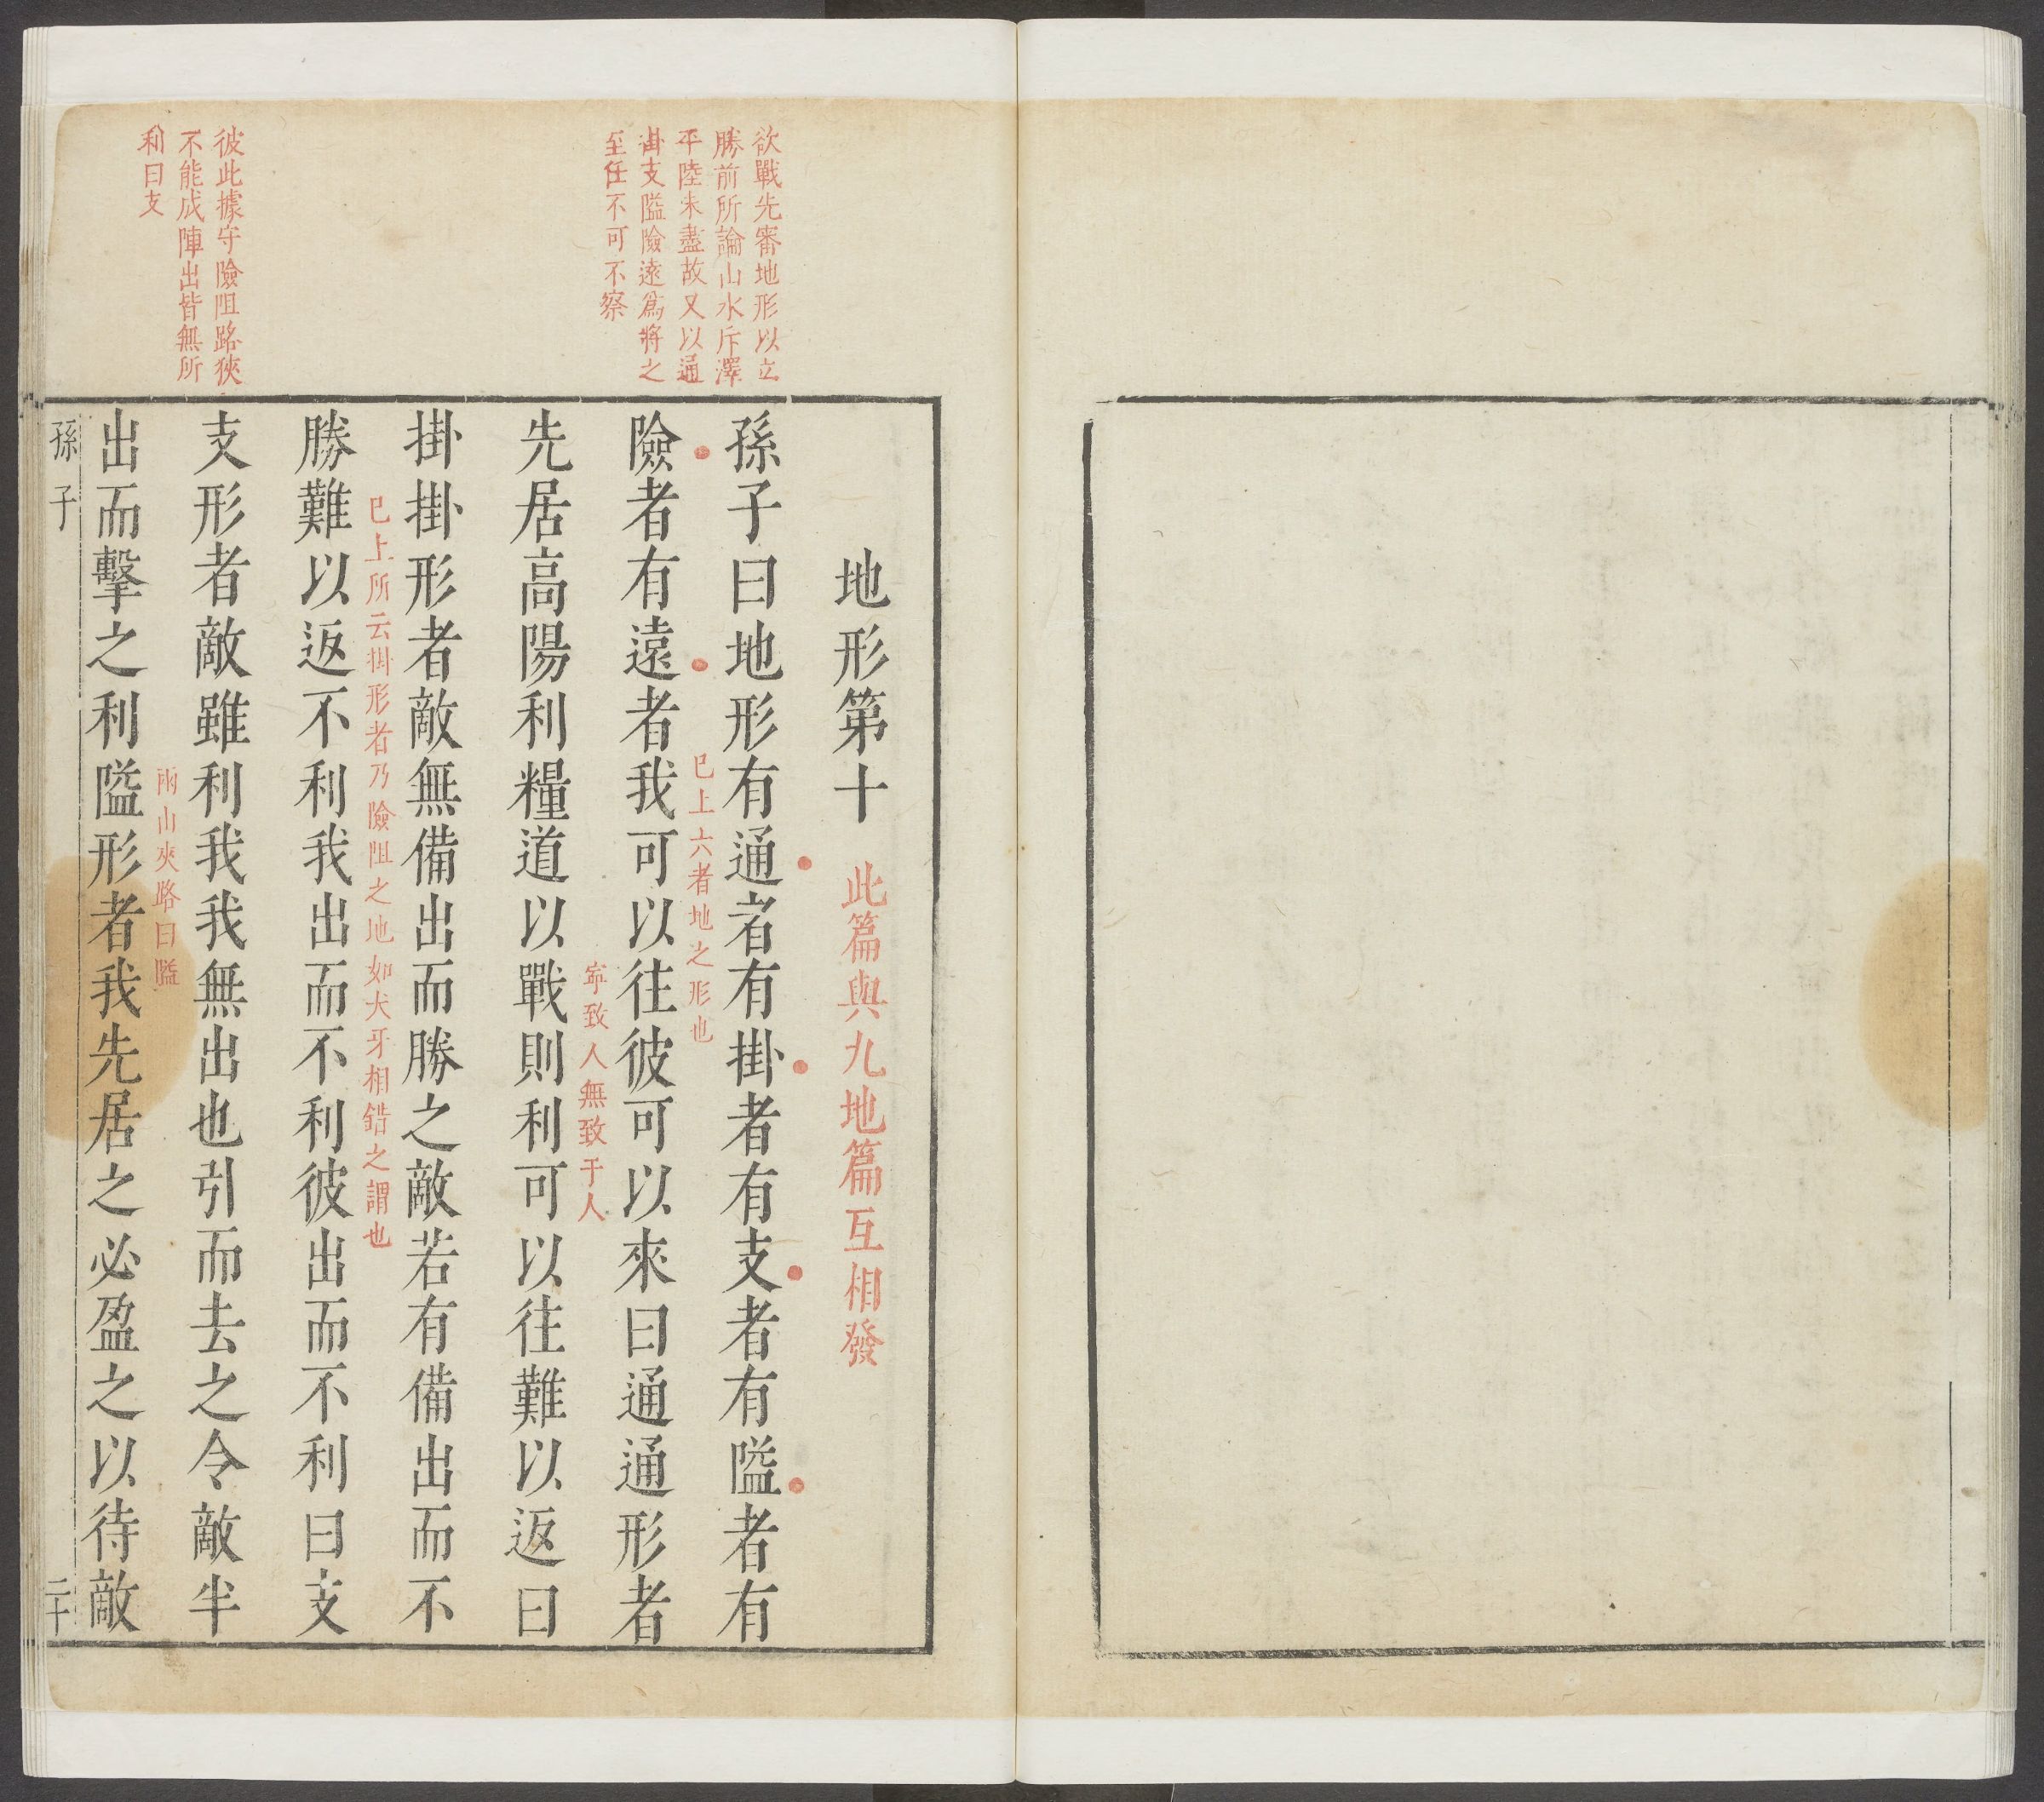 欲戰先審地形以立
勝前所論山水斥澤
平陸未盡故又以通
掛支隘險遠爲將之
至任不可不察
彼此據守險阻路狹
不能成陣出皆無所
利曰支
地形第十 此篇與九地篇互相發
孫子曰地形有通者有掛者有支者有隘者有
已上六者地之形也
險者有遠者我可以往彼可以來曰通通形者
寧致人無致于人
先居高陽利糧道以戰則利可以往難以返曰
掛掛形者敵無備出而勝之敵若有備出而不
已上所云掛形者乃險阻之地如犬牙相錯之謂也
勝難以返不利我出而不利彼出而不利曰支
支形者敵雖利我我無出也引而去之令敵半
兩山夾路曰隘
出而擊之利隘形者我先居之必盈之以待敵
孫子 二十